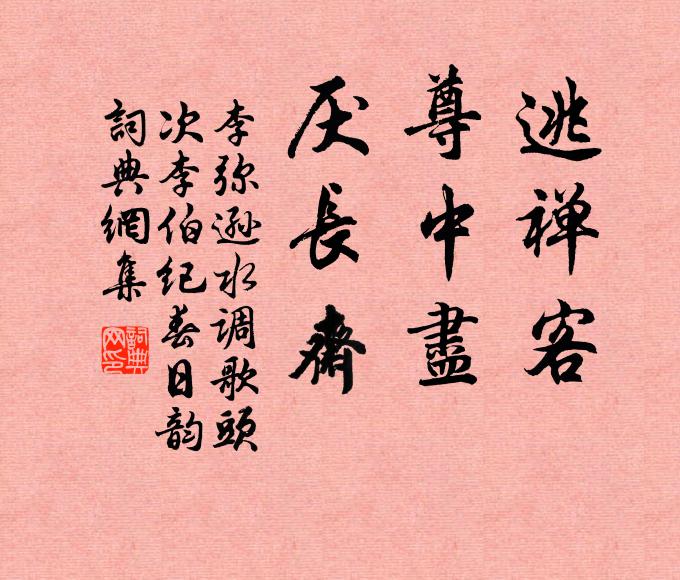 逃禅客
尊中盡
厌長齋
李弥遜水调歌頭
次李伯纪春日韵
詞典網集
詞典網印